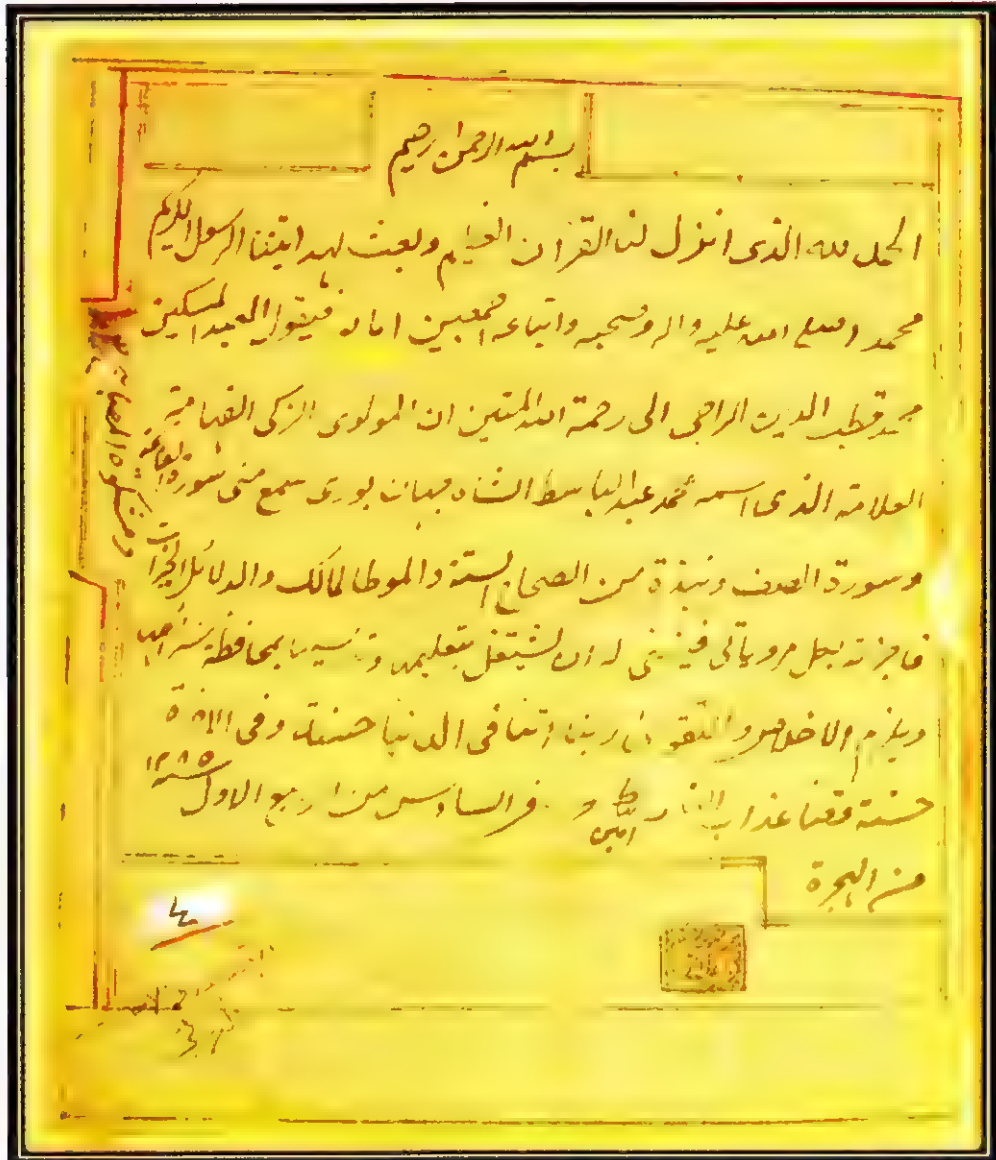 بسم الله الرحمن الرحيم
الحمد لله الذى انزل لنا القرآن العظيم وبعث لهدايتنا الرسول الكريم
محمد صلى الله عليه واله وصحبه واتباعه اجمعين اما بعد فيقول العبد المسكين
محمد قطب الدين الراجى الى رحمة الله المتين ان المولوى الزكى الفهامة
العلامة الذى اسمه محمد عبد الباسط الشاه جهان بورى سمع منى سورة الفاتحة
وسورة الصف ونبذة من الصحاح الستة والموطا لمالك والدلائل الخيرات
فاجزته بكل مروياتى فينبغى له ان يشتغل بتعليمها بمحافظة
ويلزم الاخلاص والتقوى ربنا اتنا فى الدنيا حسنة وفى الاخرة
حسنة وقنا عذاب النار امين السادس من ربيع الاول ١٢٨٥
من الهجرة